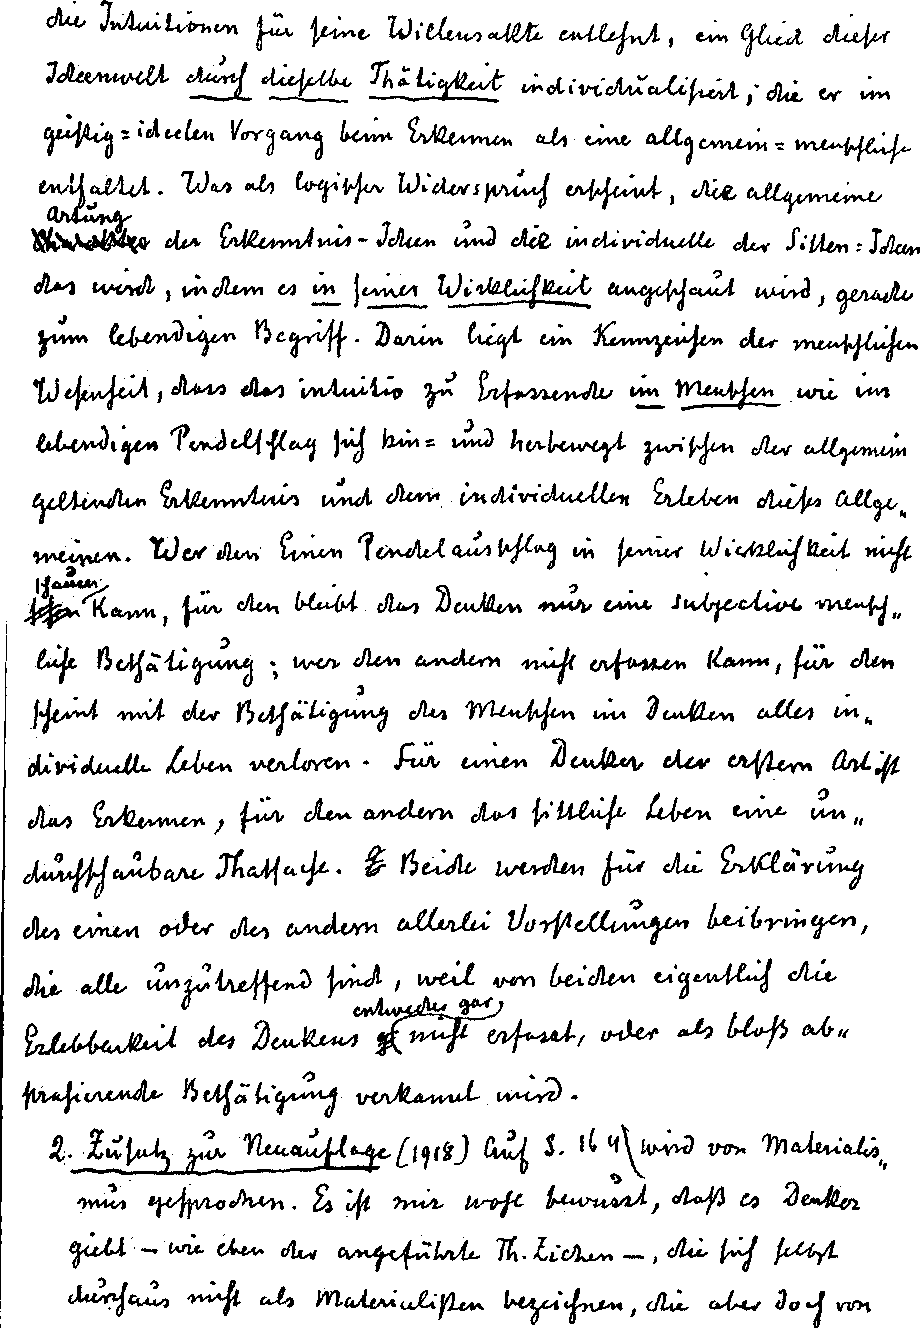 die Intuitionen für seine Willensakte entlehnt, ein Glied dieser
Ideenwelt durch dieselbe Thätigkeit individualisiert, die er im
geistig=ideelen Vorgang beim Erkennen als eine allgemein=menschliche
entfaltet. Was als logischer Widerspruch erscheint, die allgemeine
Artung
der Erkenntnis-Ideen und die individuelle der Sitten=Ideen
das wird, indem es in seiner Wirklichkeit angeschaut wird, gerade
zum lebendigen Begriff. Darin liegt ein Kennzeichen der menschlichen
Wesenheit, dass das intuitiv zu Erfassende im Menschen wie im
lebendigen Pendelschlag sich hin= und herbewegt zwischen der allgemein
geltenden Erkenntnis und dem individuellen Erleben dieses Allge„
meinen. Wer den Einen Pendelausschlag in seiner Wirklichkeit nicht
schauen
kann, für den bleibt das Denken nur eine subjective mensch„
liche Bethätigung; wer den andern nicht erfassen kann, für den
scheint mit der Bethätigung des Menschen im Denken alles in„
dividuelle Leben verloren. Für einen Denker der erstern Art ist
das Erkennen, für den andern das sittliche Leben eine un„
durchschaubare Thatsache. Beide werden für die Erklärung
des einen oder des andern allerlei Vorstellungen beibringen,
die alle unzutreffend sind, weil von beiden eigentlich die
entweder gar
Erlebbarkeit des Denkens nicht erfasst, oder als bloß ab„
strahierende Bethätigung verkannt wird.
2. Zusatz zur Neuauflage (1918) Auf S. 164 wird von Materialis„
mus gesprochen. Es ist mir wohl bewusst, daß es Denker
giebt – wie eben der angeführte Th. Ziehen –, die sich selbst
durchaus nicht als Materialisten bezeichnen, die aber doch von